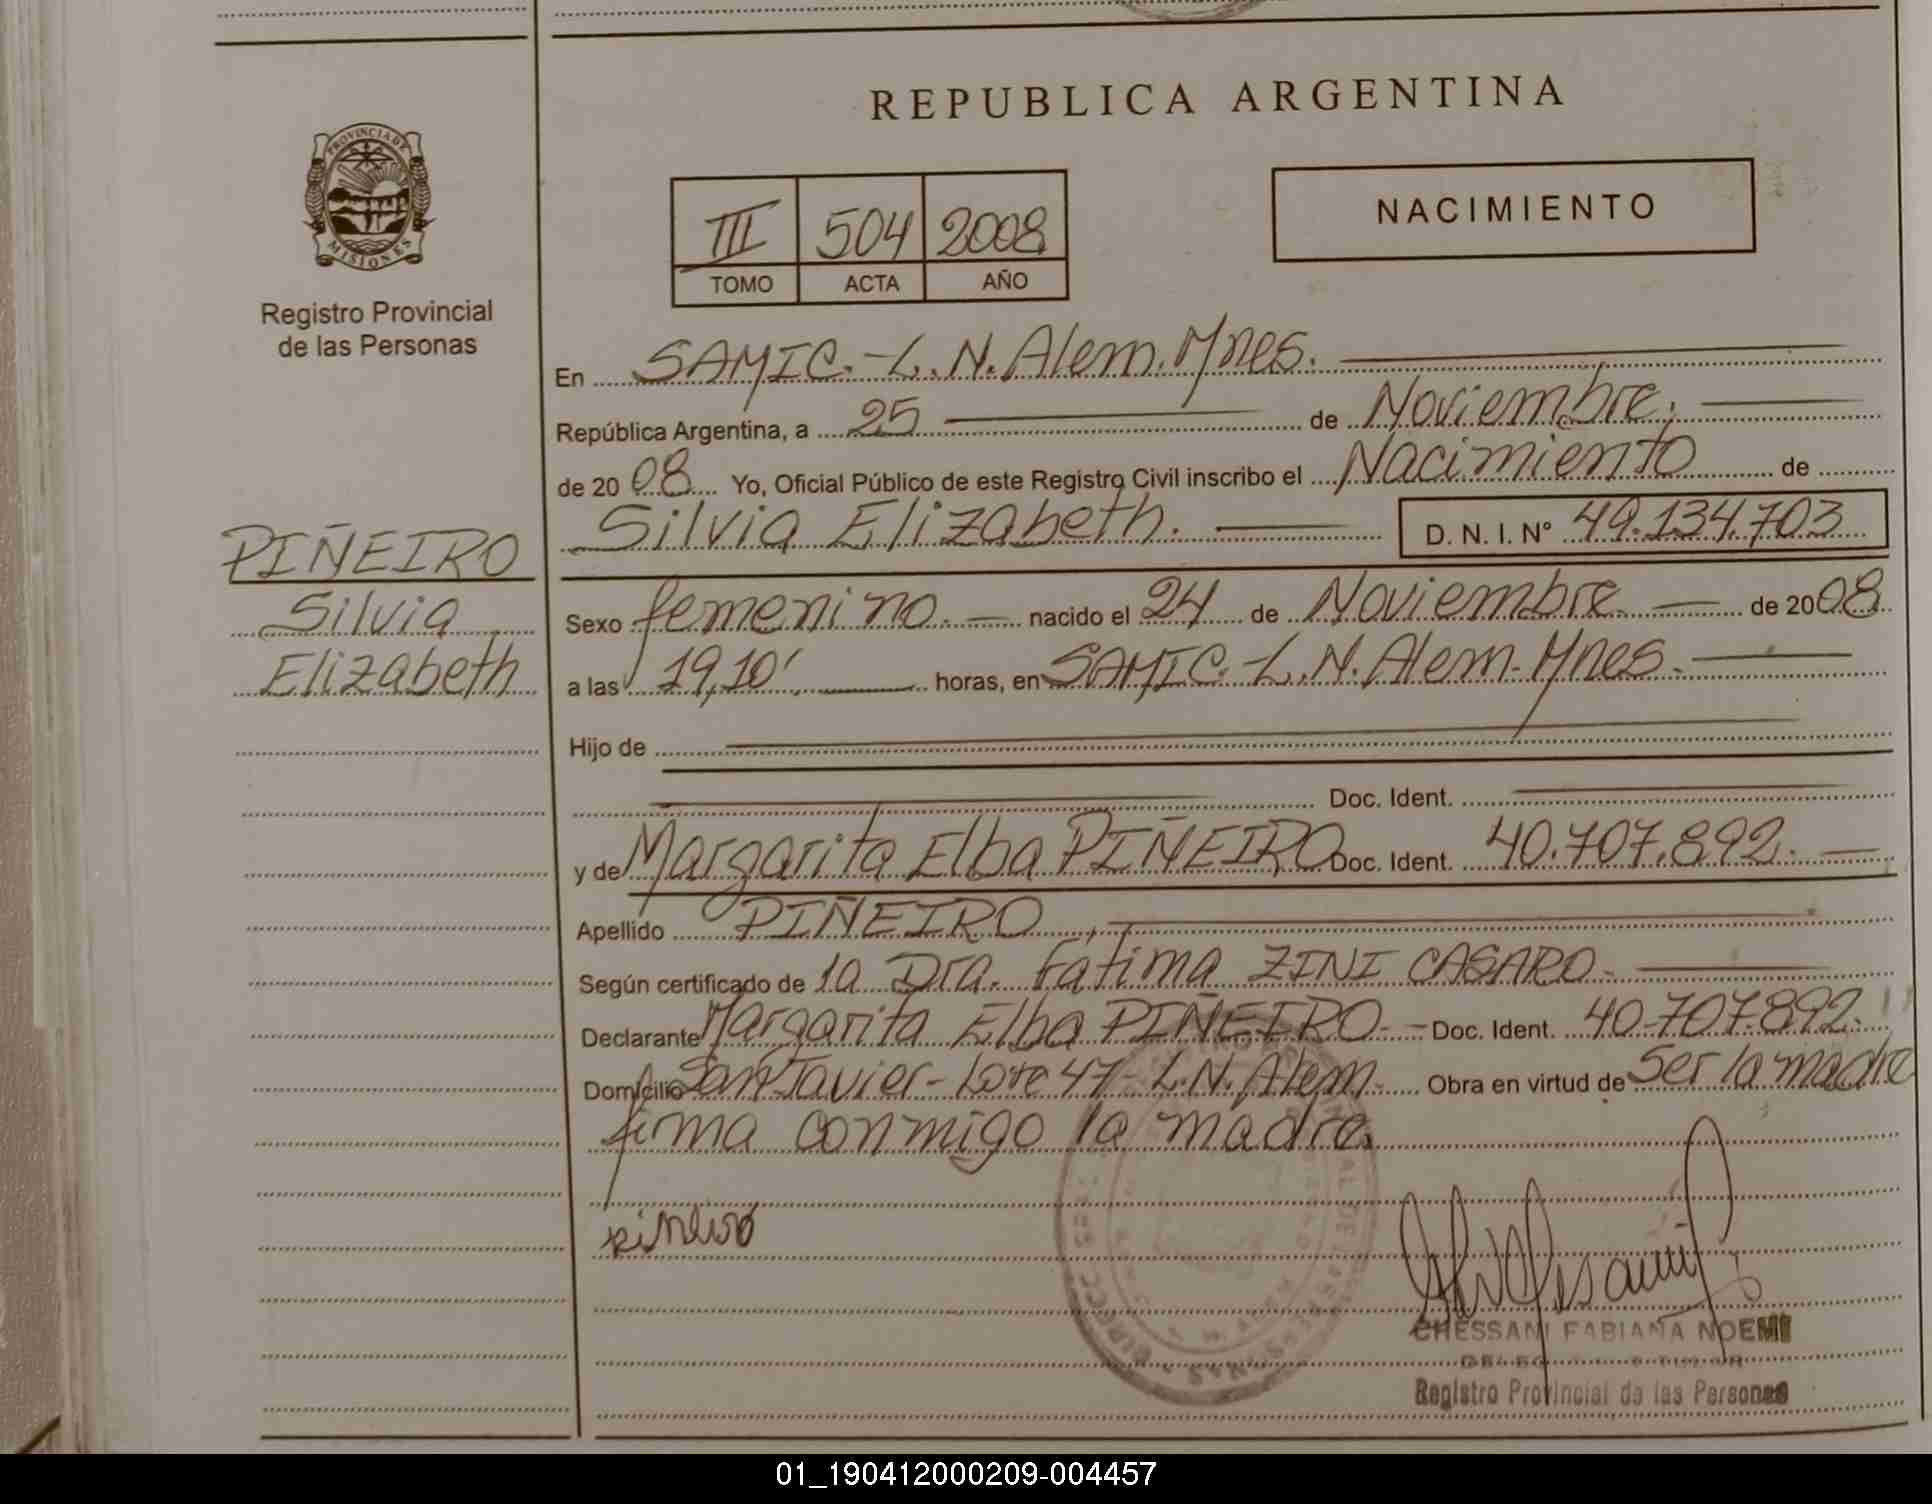 REPUBLICA ARGENTINA
PROVINCIA DE
MISIONES
Registro Provincial
de las Personas
III 504 2008
TOMO ACTA AÑO
NACIMIENTO
En SAMIC.-L.N.Alem.Mnes.
República Argentina, a 25 de Noviembre.
de 2008 Yo, Oficial Público de este Registro Civil inscribo el Nacimiento de
Silvia Elizabeth. D. N. I. N° 49.134.703
PIÑEIRO
Silvia
Elizabeth
Sexo femenino.- nacido el 24 de Noviembre de 2008
a las 19,10' horas, en SAMIC.-L.N.Alem-Mnes.-
Hijo de
Doc. Ident.
y de Margarita Elba PIÑEIRO Doc. Ident. 40.707.892.-
Apellido PIÑEIRO
Según certificado de la Dra. Fatima ZINI CASARO.-
Declarante Margarita Elba PIÑEIRO.- Doc. Ident. 40.707.892.
Domicilio San Javier-Lote 47-L.N.Alem. Obra en virtud de Ser la madre
firma conmigo la madre.
piñeiro
CHESSANI FABIANA NOEMI
Registro Provincial de las Personas
01_190412000209-004457